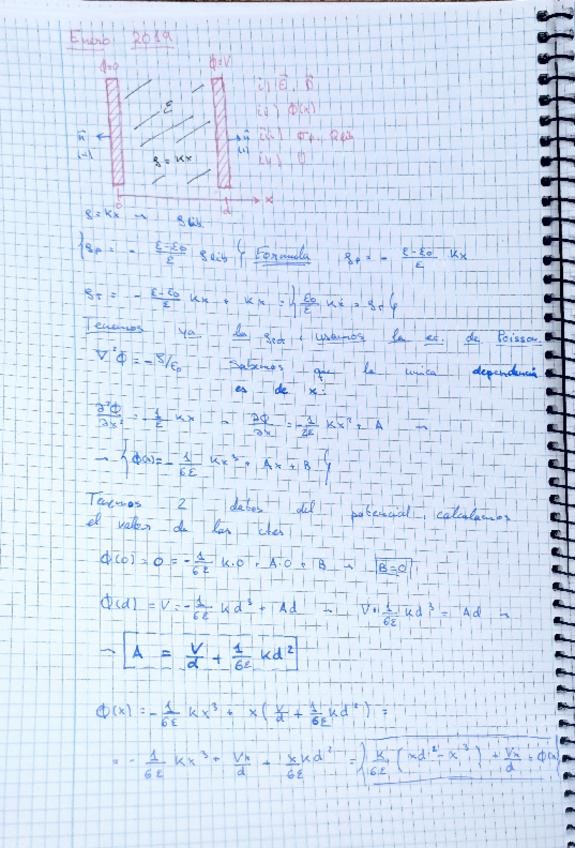 Enero 2019
ϕ=0 ϕ=V
i) E⃗, D⃗
ε
ii) ϕ(x)
n⃗ n⃗
iii) σp, σlib
(-1) (1)
ρ=Kx
iv) U
0 d x
ρ=Kx → ρlib
{ρp = - (ε-ε0)/ε ρlib} Formula ρp = - (ε-ε0)/ε Kx
ρT = - (ε-ε0)/ε Kx + Kx = {ε0/ε Kx = ρT}
Tenemos ya la, usamos la ec. de Poisson
∇²ϕ = -ρ/ε0 Sabemos que la unica dependencia
es de x:
∂²ϕ/∂x² = -1/ε Kx → ∂ϕ/∂x = -1/2ε Kx² + A →
→ {ϕ(x) = -1/6ε Kx³ + Ax + B}
Tenemos 2 datos del potencial, calculamos
el valor de las ctes
ϕ(0) = 0 = -1/6ε K·0 + A·0 + B → B=0
ϕ(d) = V = -1/6ε Kd³ + Ad → V+1/6ε Kd³ = Ad →
→ A = V/d + 1/6ε Kd²
ϕ(x) = -1/6ε Kx³ + x(V/d + 1/6ε Kd²) =
= -1/6ε Kx³ + Vx/d + xKd²/6ε = {K/6ε (xd² - x³) + Vx/d = ϕ(x)